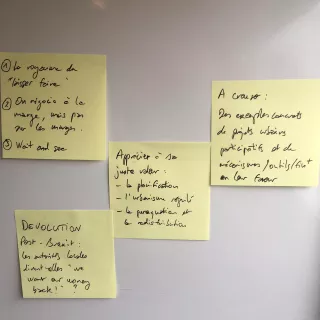 ① Le royaume du
"laisser faire"
② On négocie à la
marge, mais pas
sur les marges.
③ Wait and see
A creuser :
Des exemples concrets
de projets urbains
participatifs et de
mécanismes/outils/fin
en leur faveur
Apprécier à sa
juste valeur :
- la planification
- l'urbanisme régul
- la péréquation et
la redistribution
DEVOLUTION
Post-Brexit :
les autorités locales
diront-elles "we
want our money
back!" ?